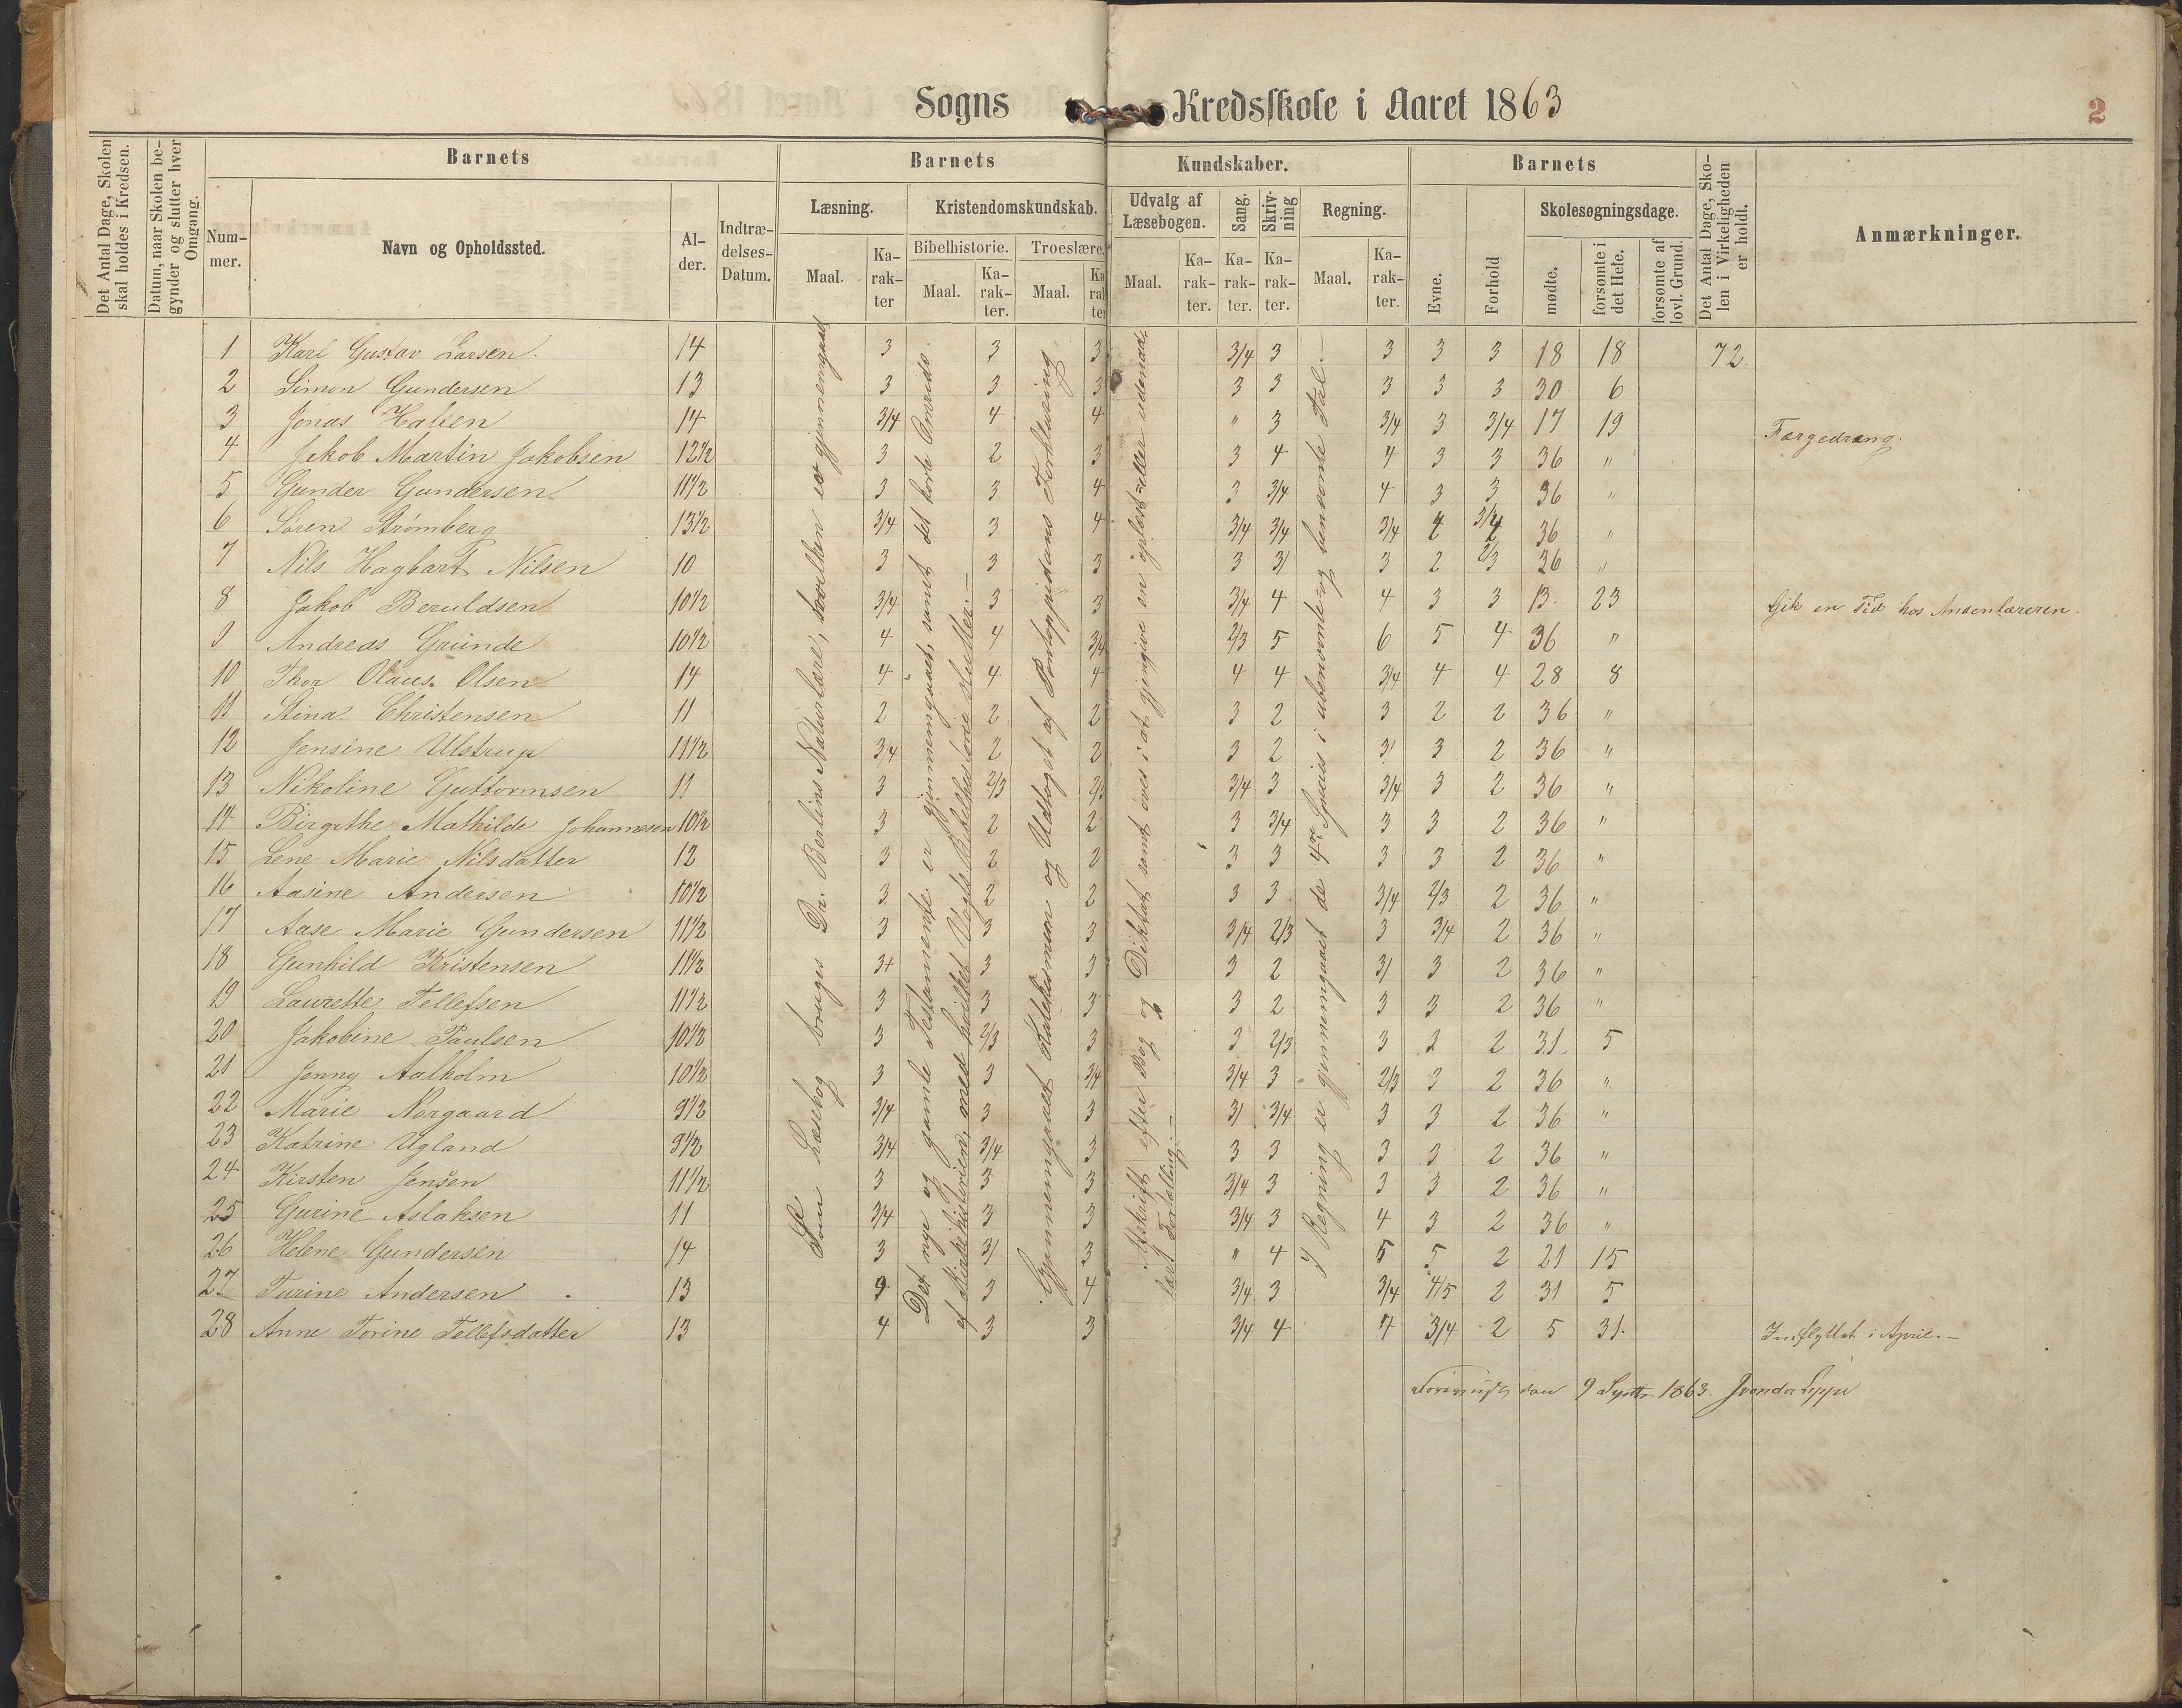 Sogns Kredsskole i Aaret 1863
2
Det Antal Dage, Skolen skal holdes i Kredsen.
Datum, naar Skolen begynder og slutter hver Omgang.
Barnets
Nummer.
Navn og Opholdssted.
Alder.
Indtrædelses-Datum.
Barnets Kundskaber.
Læsning.
Maal.
Karakter
Kristendomskundskab.
Bibelhistorie.
Maal.
Karakter.
Troeslære.
Maal.
Karakter
Udvalg af Læsebogen.
Maal.
Karakter.
Sang.
Karakter.
Skrivning
Karakter.
Regning.
Maal.
Karakter.
Barnets
Evne.
Forhold
Skolesøgningsdage.
mødte.
forsømte i det Hele.
forsømte af lovl. Grund.
Det Antal Dage, Skolen i Virkeligheden er holdt.
Anmærkninger.
1 Karl Gustav Larsen. 14 3 3 3 3/4 3 3 3 3 18 18 72
2 Simon Gundersen 13 3 3 3 3 3 3 3 3 30 6
3 Jonas Halsen 14 3/4 4 4 " 3 3/4 3 3/4 17 19 Færgedræng.
4 Jakob Martin Jakobsen 12 1/2 3 2 3 3 4 4 3 3 36 "
5 Gunder Gundersen 11 1/2 3 3 4 3 3/4 4 3 3 36 "
6 Søren Strømberg 13 1/2 3/4 3 4 3/4 3/4 3/4 4 3/4 36 "
7 Nils Hagbart Nilsen 10 3 3 3 3 3/ 3 2 2/3 36 "
8 Jakob Beruldsen 10 1/2 3/4 3 3 3/4 4 4 3 3 13. 23 Gik en Tid hos Andenlæreren.
9 Andreas Gründe 10 1/2 4 4 3/4 2/3 5 6 5 4 36 "
10 Thor Olaus. Olsen 14 4 4 4 4 4 3/4 4 4 28 8
11 Stina Christensen 11 2 2 2 3 2 3 2 2 36 "
12 Jensine Ulstrup 11 1/2 3/4 2 2 3 2 3/ 3 2 36 "
13 Nikoline Guttormsen 11 3 2/3 2/3 3/4 3 3/4 3 2 36 "
14 Birgithe Mathilde Johannesen 10 1/2 3 2 2 3 3/4 3 3 2 36 "
15 Lene Marie Nilsdatter 12 3 2 2 3 3 3 3 2 36 "
16 Aasine Andersen 10 1/2 3 2 2 3 3 3/4 2/3 2 36 "
17 Aase Marie Gundersen 11 1/2 3 3 3 3/4 2/3 3 3/4 2 36 "
18 Gunhild Kristensen 11 1/2 3+ 3 3 3 2 3/ 3 2 36 "
19 Laurette Tellefsen 11 1/2 3 3 3 3 2 3 3 2 36 "
20 Jakobine Paulsen 10 1/2 3 2/3 3 3 2/3 3 3 2 31 5
21 Jenny Aalholm 10 1/2 3 3 3/4 3/4 3 2/3 3 2 36 "
22 Marie Norgaard 9 1/2 3/4 3 3 3/ 3/4 3 3 2 36 "
23 Katrine Ugland 9 1/2 3/4 3/4 3 3 3 3 3 2 36 "
24 Kirsten Jensen 11 1/2 3 3 3 3/4 3 3 3 2 36 "
25 Gurine Aslaksen 11 3/4 3 3 3/4 3 4 3 2 36 "
26 Helene Gundersen 14 3 3/ 3 " 4 5 5 2 21 15
27 Turine Andersen 13 3 3 4 3/4 3 3/4 4/5 2 31 5
28 Anne Torine Tellefsdatter 13 4 3 3 3/4 4 4 3/4 2 5 31. Indflyttet i April.–
Som Læsebog bruges Dr. Berlins Naturlære, hvilken er gjennemgaaet
Det nye og gamle Testamente er gjennemgaaet, samt det korte Omrids
af Kirkehistorien, med hvilket Vogts Bibelhistorie slutter.–
Gjennemgaaet Katekismen og Udtoget af Pontoppidans Forklaring
Afskrift efter Bog og Diktat samt øves i at gjengive en oplæst eller udenad
lært Fortælling.–
I Regning er gjennemgaaet de 4re Species i ubenævnte og benævnte Tal.–
den 9 Septbr 1863.